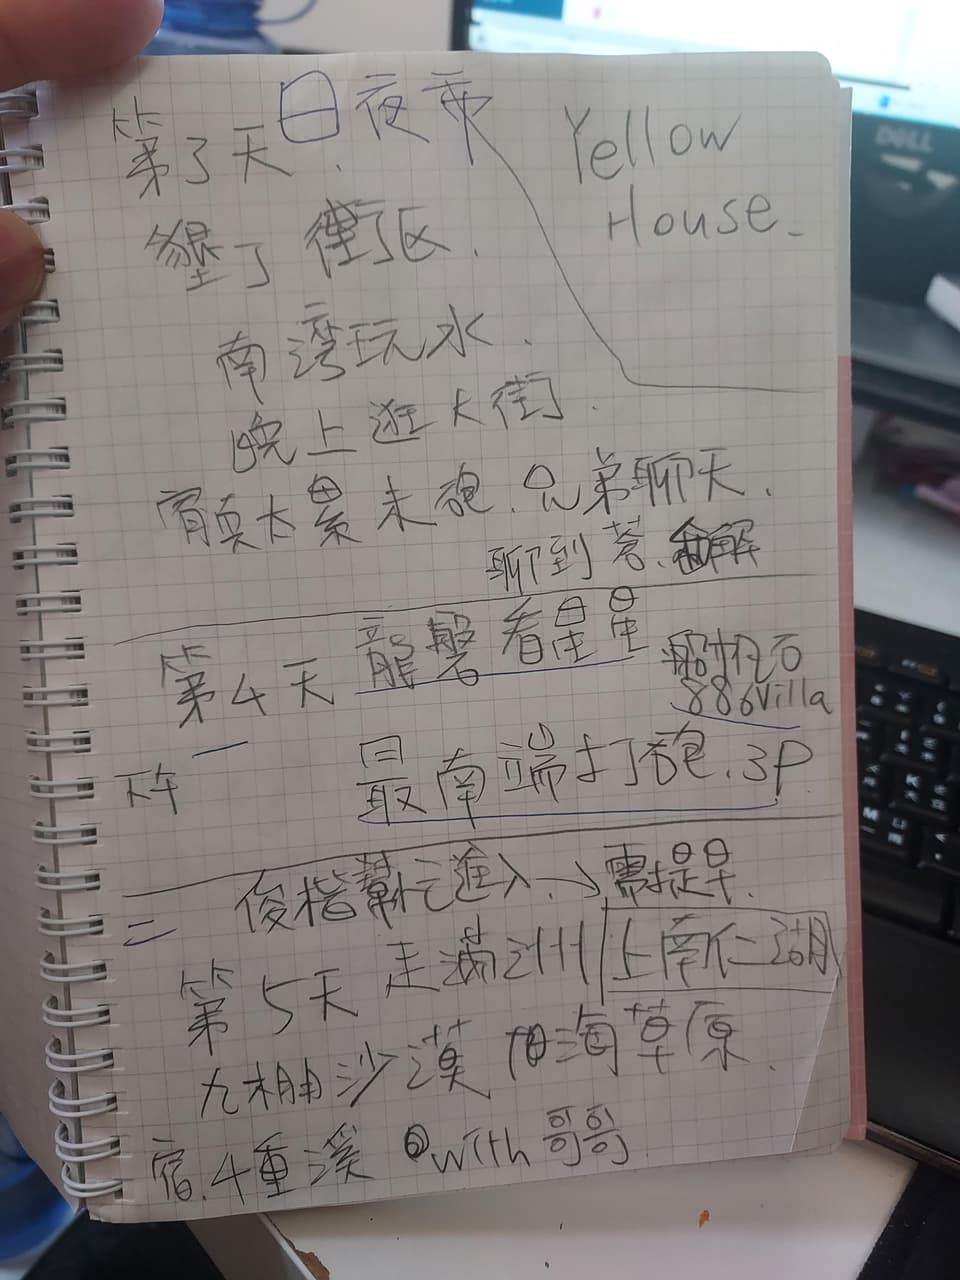 日夜乘
第3天.
Yellow
House.
墾丁 街区.
南湾玩水.
晚上逛大街.
肯真太累未砲.兄弟聊天.
聊到 和解
第4天 龍磐看星星
船帆石
886Villa
一
下午 最南端打砲.3P.
二 俊楷幫忙進入.→需提早.
第5天 走滿洲 上南仁湖
九棚沙漠 海草原.
宿.4重溪 with哥哥
DELL